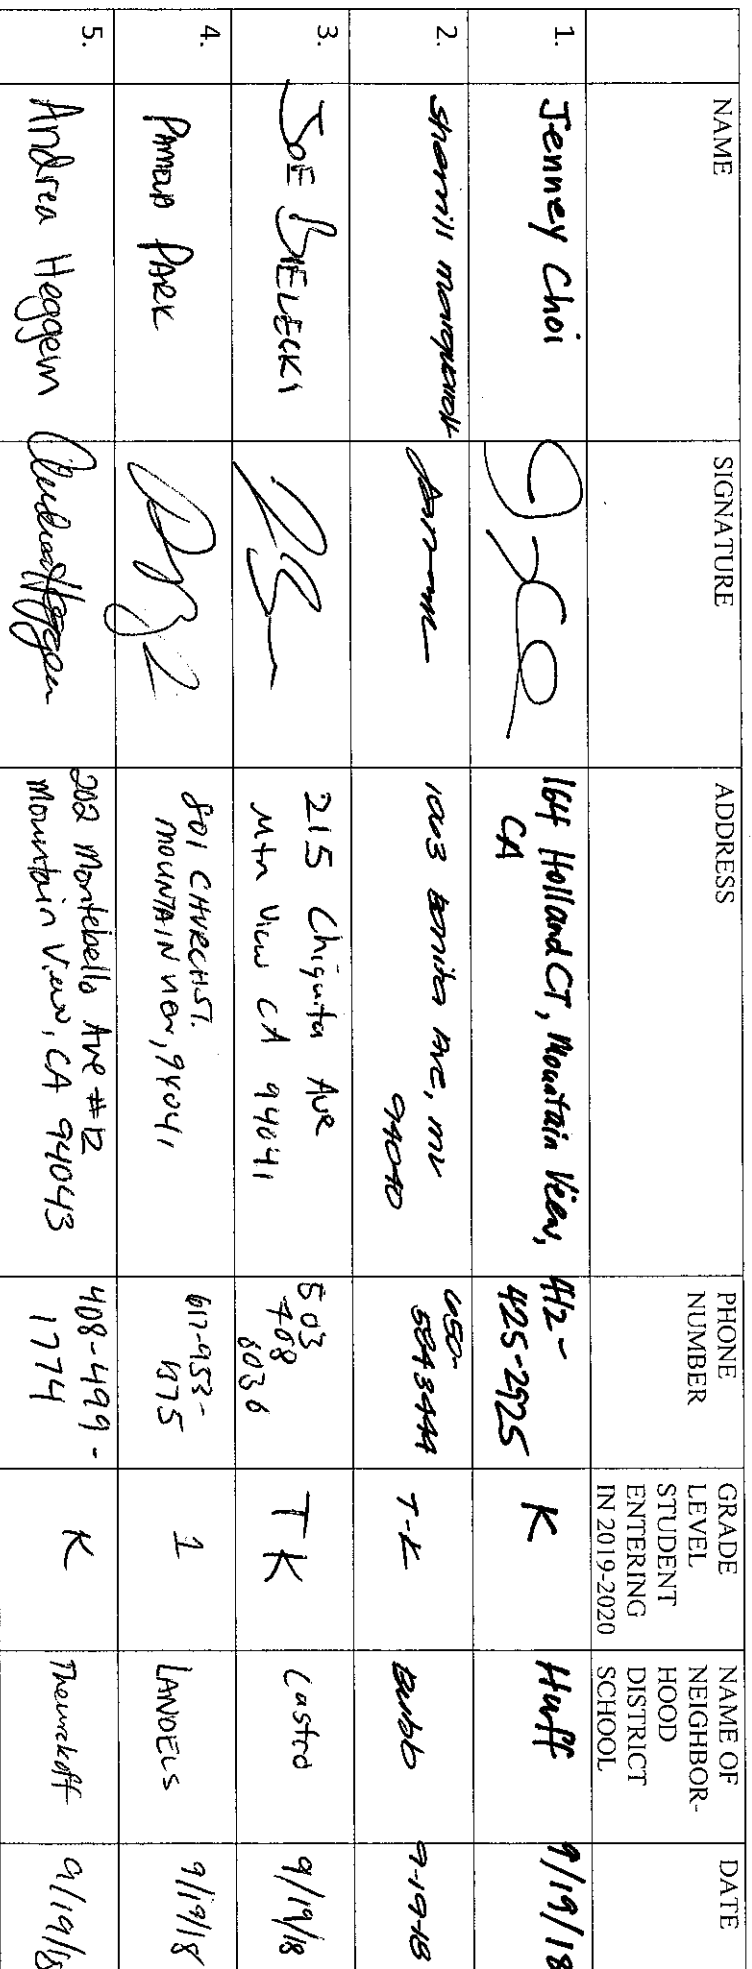 NAME
SIGNATURE
ADDRESS
PHONE
NUMBER
GRADE
LEVEL
STUDENT
ENTERING
IN 2019-2020
NAME OF
NEIGHBOR-
HOOD
DISTRICT
SCHOOL
DATE
1.
Jenney Choi
164 Holland CT, Mountain View,
CA
412-
425-2925
K
Huff
9/19/18
2.
Sherrill
1063 Bonita Ave, MV
94040
650-
T-K
Bubb
9-19-18
3.
JOE BIELECKI
215 Chiquita Ave
Mtn View CA 94041
503
708
8036
TK
Castro
9/19/18
4.
PARK
801 CHURCH ST.
MOUNTAIN VIEW, 94041
617-953-
1
LANDELS
9/19/18
5.
Andrea Heggem
Andrea Heggem
202 Montebello Ave #12
Mountain View, CA 94043
408-499-
1774
K
9/19/18